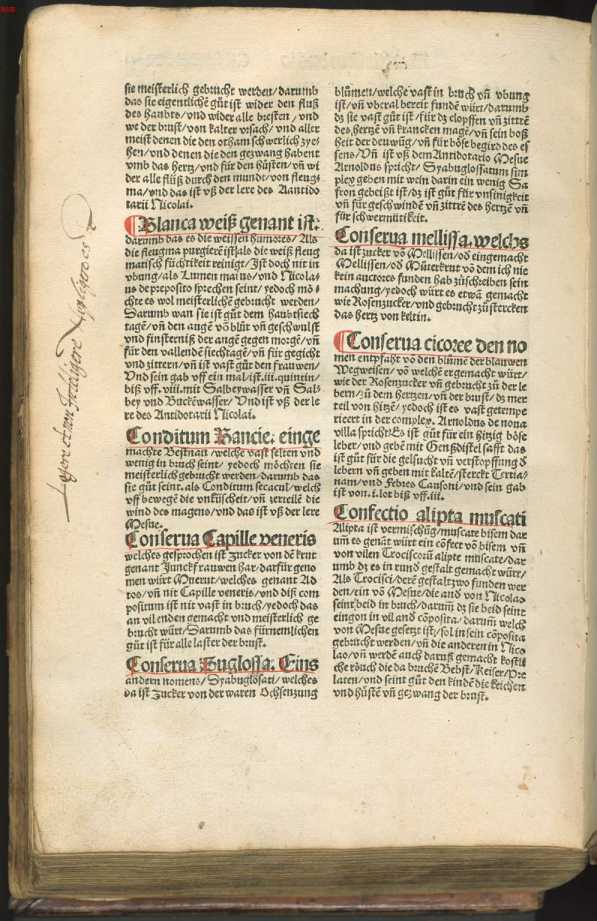 sie meisterlich gebrucht werden/darumb
das sie eigentlichē gůt ist wider den fluß
des haubts/vnd wider alle bresten/vnd
we der brust/von kalter vrsach/vnd aller
meist denen die den otham schwerlich zye-
hen/vnd denen die den gezwang habent
vmb das hertz/vnd für den hůsten/vñ wi
der alle flüß durch den mundt/von flegs
ma/vnd das ist vß der lere des Aantido
tarij Nicolai.
Blanca weiß genant ist.
darumb das es die weissen humores/Als
die flegma purgierē ist/als die weiß flegs
matisch füchtikeit reinigt/Ist doch nit in
vbung/als Lumen maius/vnd Nicola-
us de preposito sprechen seint/yedoch mö-
chte es wol meisterlichē gebrucht werden/
Darumb wan sie ist gůt dem haubtsiech
tagē/vñ den augē vō blůt vñ geschwulst
vnd finsterniß der augē gegen morgē/vñ
für den vallendē siechtagē/vñ für gegicht
vnd zittern/vñ ist vast gůt den frauwen/
Vnd sein gab vff ein mal/ist.iii.quintin/
biß vff.viii.mit Salbeywasser vñ Sal-
bey vnd Buckēwasser/Vnd ist vß der le
re des Antidotarij Nicolai.
Conditum Bancie. einge
machte Bestnaū/welche vast selten vnd
wenig in bruch seint/yedoch möchten sie
meisterlich gebrucht werden/darumb das
sie gůt seint.als Conditum secacul/welch
vff bewegē die vnkůscheit/vñ zerteilē die
wind des magens/vnd das ist vß der lere
Mesue.
Conserua Capille veneris
welches gesprochen ist zucker von dē krut
genant Junckfrauwen har/darfür geno
men würt Muerut/welches genant Ad
tos/vñ nit Capille veneris/vnd diß com
positum ist nit vast in bruch/yedoch das
an vil enden gemacht vnd meisterlich ge
brucht würt/Darumb das fürnemlichen
gůt ist für alle laster der brust.
Conserua Buglossa. Eins
andern nomens/Syabuglosati/welches
da ist zucker von der waren Ochsenzung
blůmen/welche vast in bruch vñ vbung
ist/vñ vberal bereit fundē würt/darumb
dz sie vast gůt ist/für dz clopffen vñ zittrē
des hertzē vñ krancken magē/vñ sein boß
heit der deuwūg/vñ für bösē begird des es
sens/Vñ ist vß dem Antidotario Mesue
Arnoldus spricht/Syabuglossatum sim
plex geben mit wein darin ein wenig Sa
fron gebeitzt ist/dz ist gůt für vnsinigkeit
vñ für geschwindē vñ zittrē des hertzē vñ
für schwermütikeit.
Conserua mellissa. welchs
da ist zucker vō Mellissen/od eingemacht
Mellissen/od Můterkrut vō dem ich nie
kein auctores funden hab zůschribēn sein
machung/yedoch würt es etwā gemacht
wie Rosenzucker/vnd gebrucht zů stercken
das hertz von keltin.
Conserua cicoree den no
men entpfaht vō den blůmē der blauwen
Wegweisen/vō welchē er gemacht würt/
wie der Rosenzucker vñ gebrucht zů der le
bern/zů dem hertzen/vñ der brust/dz mer
teil von hitzē/yedoch ist es vast getempe
rieert in der complex. Arnoldus de noua
villa spricht/Es ist gůt für ein hitzig bösē
leber/vnd gebē mit Genßdistel safft das
ist gůt für die gelsucht vñ verstopffung d
lebern vñ geben mit kaltē/sterckt Tertia-
nam/vnd Febres Causoni/vnd sein gab
ist von.i.lot biß vff.iii.
Confectio alipta muscati
Alipta ist vermischūg/muscate bisem dar
um̄ es genāt würt ein cōfect vō bisem vñ
von vilen Trociscorū alipte muscate/dar
umb dz es in rund gestalt gemacht würt/
Als Trocisci/derē gestalt zwo funden wer
den/ein vō Mesue/die and von Nicolao
seint beid in bruch/darum̄ dz sie beid seint
eingon in vil and cōposita/darum̄ welch
von Mesue gesetzt ist/sol in sein cōposita
gebrucht werden/vñ die anderen in Nico
lao/vñ werdē auch daruß gemacht kostli
che rönch die da bruchē Bebst/Keiser/Pre
laten/vnd seint gůt den kindē die keichen
vnd hůstē vñ gezwang der brust.